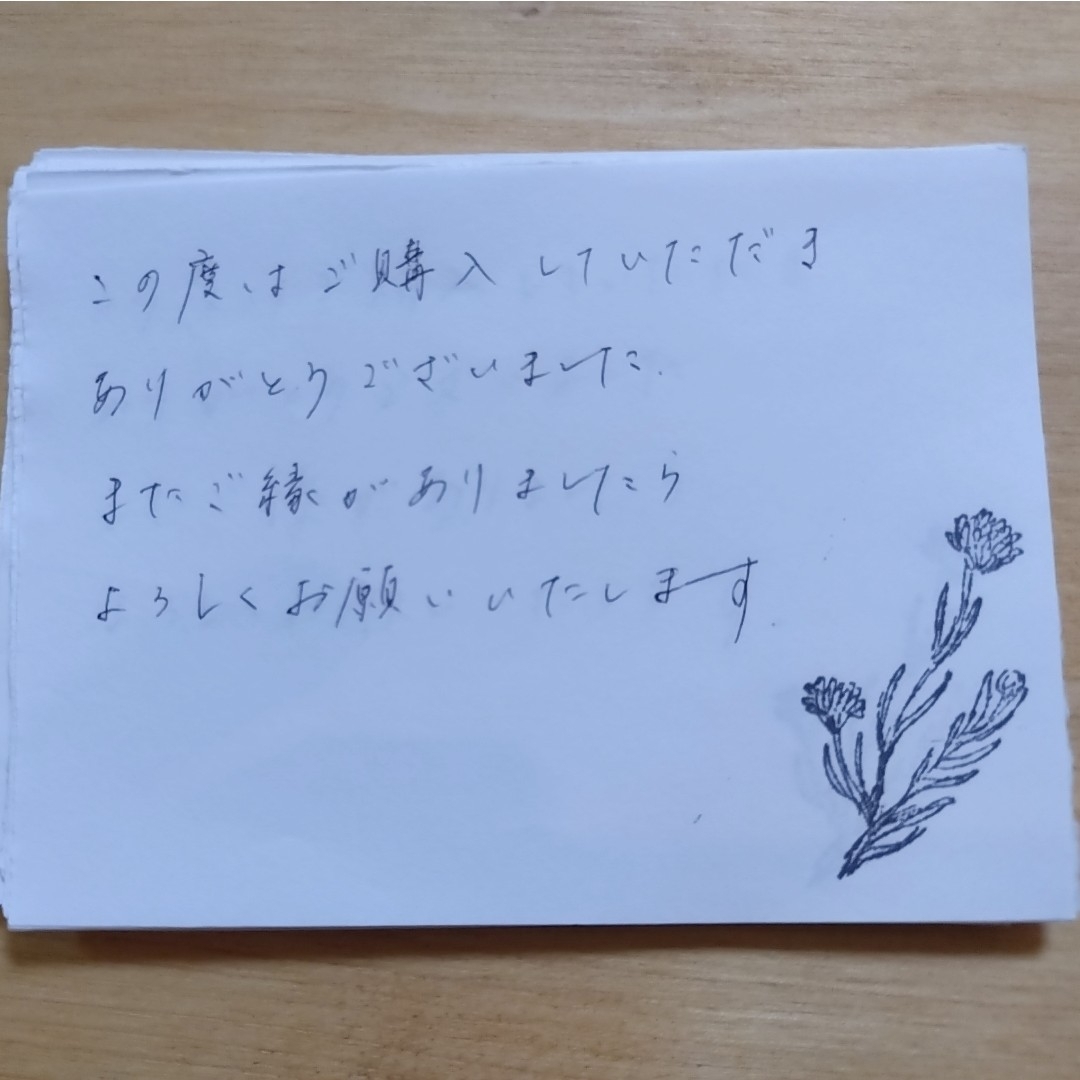 この度はご購入していただき
ありがとうございました.
またご縁がありましたら
よろしくお願いいたします.